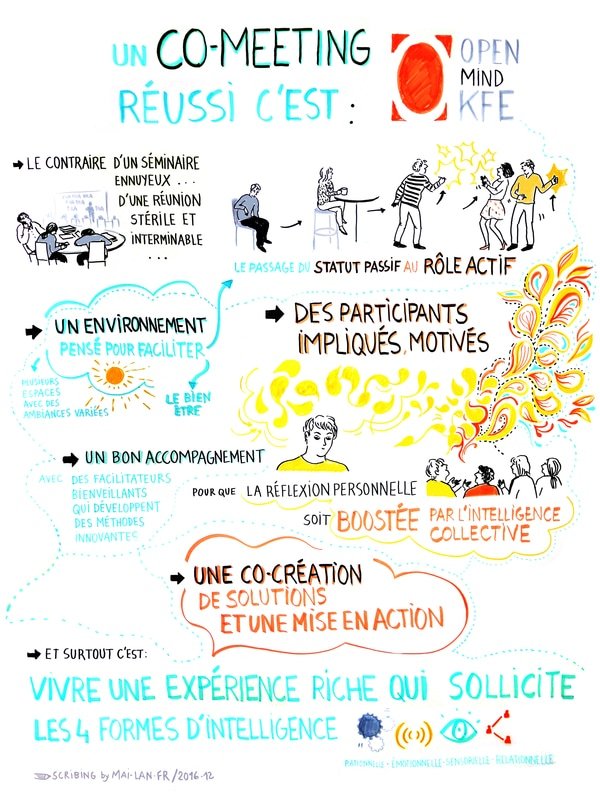 UN CO-MEETING
RÉUSSI C'EST :
OPEN
MIND
KFE
LE CONTRAIRE D'UN SÉMINAIRE
ENNUYEUX ...
D'UNE RÉUNION
STÉRILE ET
INTERMINABLE
...
LE PASSAGE DU STATUT PASSIF AU RÔLE ACTIF
UN ENVIRONNEMENT
PENSÉ POUR FACILITER
PLUSIEURS
ESPACES
AVEC DES
AMBIANCES VARIÉES
LE BIEN
ÊTRE
DES PARTICIPANTS
IMPLIQUÉS, MOTIVÉS
UN BON ACCOMPAGNEMENT
AVEC DES FACILITATEURS
BIENVEILLANTS
QUI DÉVELOPPENT
DES MÉTHODES
INNOVANTES
POUR QUE LA RÉFLEXION PERSONNELLE
SOIT BOOSTÉE PAR L'INTELLIGENCE
COLLECTIVE
UNE CO-CRÉATION
DE SOLUTIONS
ET UNE MISE EN ACTION
ET SURTOUT C'EST:
VIVRE UNE EXPÉRIENCE RICHE QUI SOLLICITE
LES 4 FORMES D'INTELLIGENCE
RATIONNELLE - ÉMOTIONNELLE - SENSORIELLE - RELATIONNELLE
SCRIBING by MAI-LAN.FR/2016-12